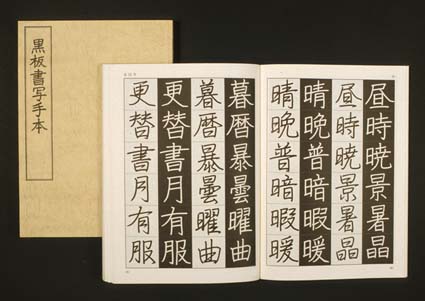 黒板書写手本
昼時暁景暑晶
昼時暁景暑晶
晴晩普暗暇暖
晴晩普暗暇暖
暮暦暴曇曜曲
暮暦暴曇曜曲
更替書月有服
更替書月有服